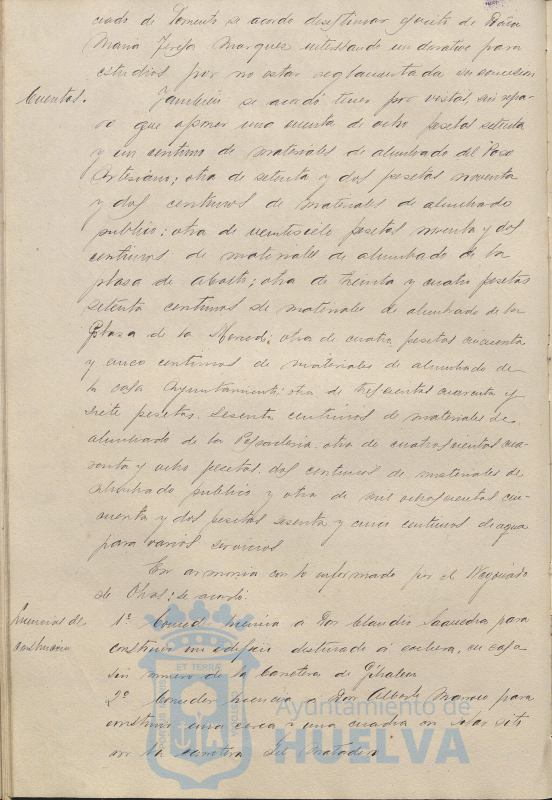 ciado de Fomento se acordó desestimar escrito de Doña
Maria Teresa Marquez interesando un donativo para
estudios por no estar reglamentada su concesion
Cuentas. Tambien se acordó tener por vistas, sin repa-
ro que oponer una cuenta de ocho pesetas setenta
y un centimo de materiales de alumbrado del Pozo
Artesiano; otra de setenta y dos pesetas noventa
y dos centimos de materiales de alumbrado
publico; otra de veintisiete pesetas noventa y dos
centimos de materiales de alumbrado de la
plaza de abasto; otra de treinta y cuatro pesetas
setenta centimos de materiales de alumbrado de la
Plaza de la Merced; otra de cuatro pesetas cincuenta
y cinco centimos de materiales de alumbrado de
la casa Ayuntamiento; otra de trescientas cuarenta y
siete pesetas sesenta centimos de materiales de
alumbrado de la Pescaderia. otra de cuatrocientas cua-
renta y ocho pesetas dos centimos de materiales de
alumbrado publico y otra de mil ochocientas cin-
cuenta y dos pesetas sesenta y cinco centimos de agua
para varios servicios
En armonia con lo informado por el Negociado
de Obras; se acordó:
Licencias de construccion
1º Conceder licencia a Don Claudio Saavedra para
construir un edificio destinado a cochera, en casa
sin numero de la Carretera de Gibraleon
2º Conceder licencia a Don Alberto para
construir una cerca y una cuadra en solar sito
en la carretera del Matadero
ET TERRAE
Ayuntamiento de
HUELVA